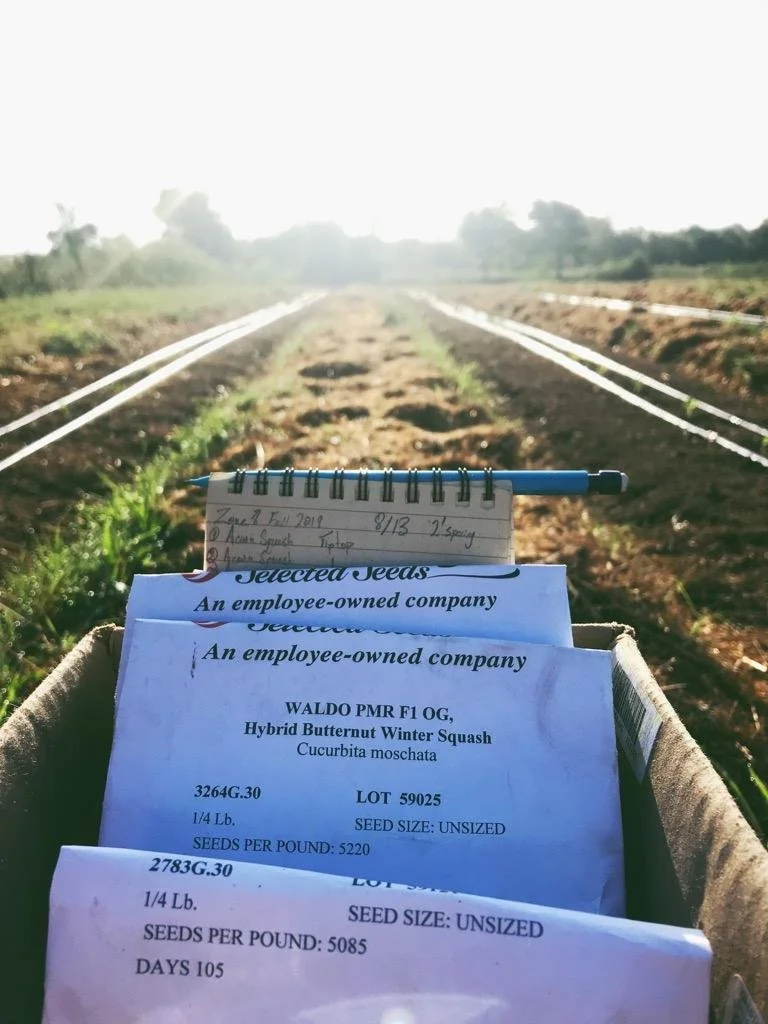 Zone 8 Fall 2019 8/13 2' spacing
① Acorn Squash Tiptop
② Acorn Squash
Selected Seeds
An employee-owned company
Selected Seeds
An employee-owned company
WALDO PMR F1 OG,
Hybrid Butternut Winter Squash
Cucurbita moschata
3264G.30 LOT 59025
1/4 Lb. SEED SIZE: UNSIZED
SEEDS PER POUND: 5220
2783G.30 LOT
1/4 Lb. SEED SIZE: UNSIZED
SEEDS PER POUND: 5085
DAYS 105